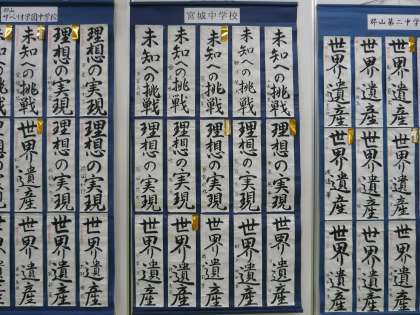 郡山
ザベリオ学園中学校
理想の実現
理想の実現
未知への挑戦
理想の実現
世界遺産
理想の実現
世界遺産
世界遺産
世界遺産
宮城中学校
未知への挑戦
未知への挑戦
未知への挑戦
未知への挑戦
未知への挑戦
理想の実現
理想の実現
理想の実現
理想の実現
理想の実現
世界遺産
世界遺産
世界遺産
世界遺産
世界遺産
郡山第二中学
世界遺産
世界遺産
世界遺産
世界遺産
世界遺産
世界遺産
世界遺産
世界遺産
世界遺産